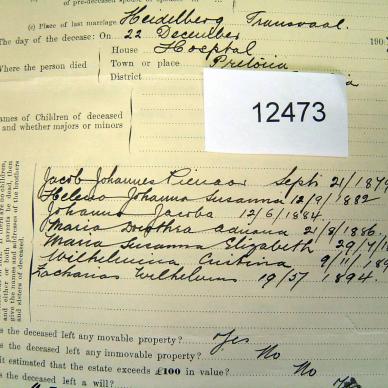 of pre-deceased spouse or spouses
(c) Place of last marriage Heidelberg Transvaal.
The day of the decease: On 22 December 190
Where the person died House Hospital
Town or place Pretoria
District
ames of Children of deceased
and whether majors or minors
12473
Jacob Johannes Pienaar Sept 21/187
Helena Johanna Susanna 12/9/1882
Johanna Jacoba 12/6/1884.
Maria Dorothea Adriana 21/8/1886.
Maria Susanna Elizabeth 29/7/1
Wilhelmina Cristina 9/11/189
Zacharias Wilhelmus 19/5/1894.
s the deceased left any movable property? Yes
s the deceased left any immovable property? No
it estimated that the estate exceeds £100 in value? No
s the deceased left a will?
either or both parents be dead, then
give the names and addresses of the brothers
and sisters of deceased.